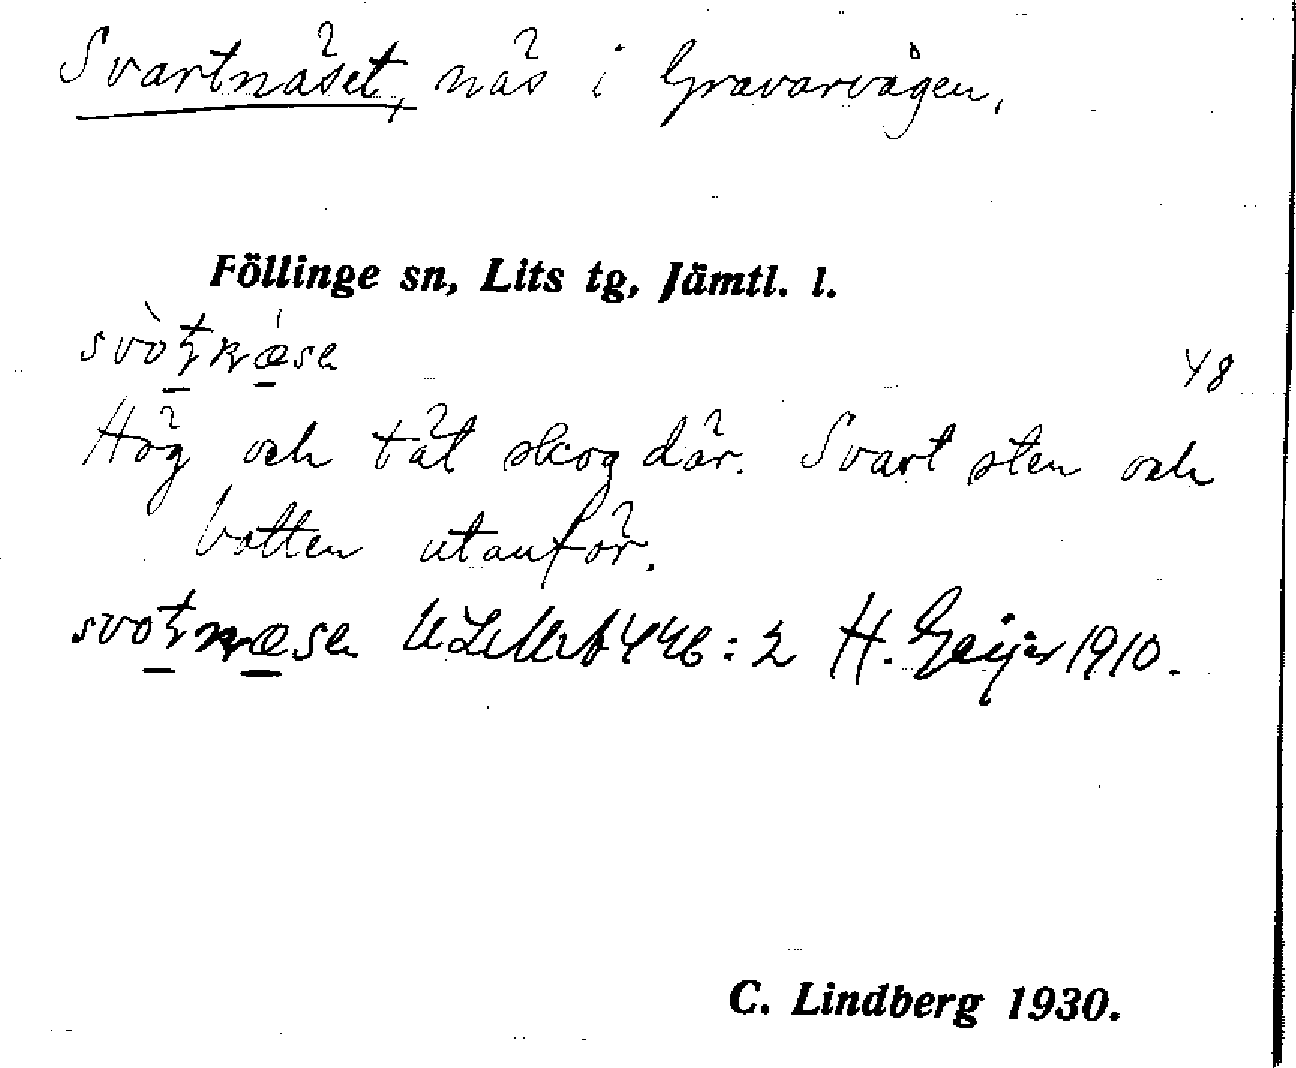 Svartnäset, näs i Gravarvågen.
Föllinge sn, Lits tg, Jämtl. l.
48
Hög och tät skog där. Svart sten och
vatten utanför.
446:2 H. Geijer 1910.
C. Lindberg 1930.